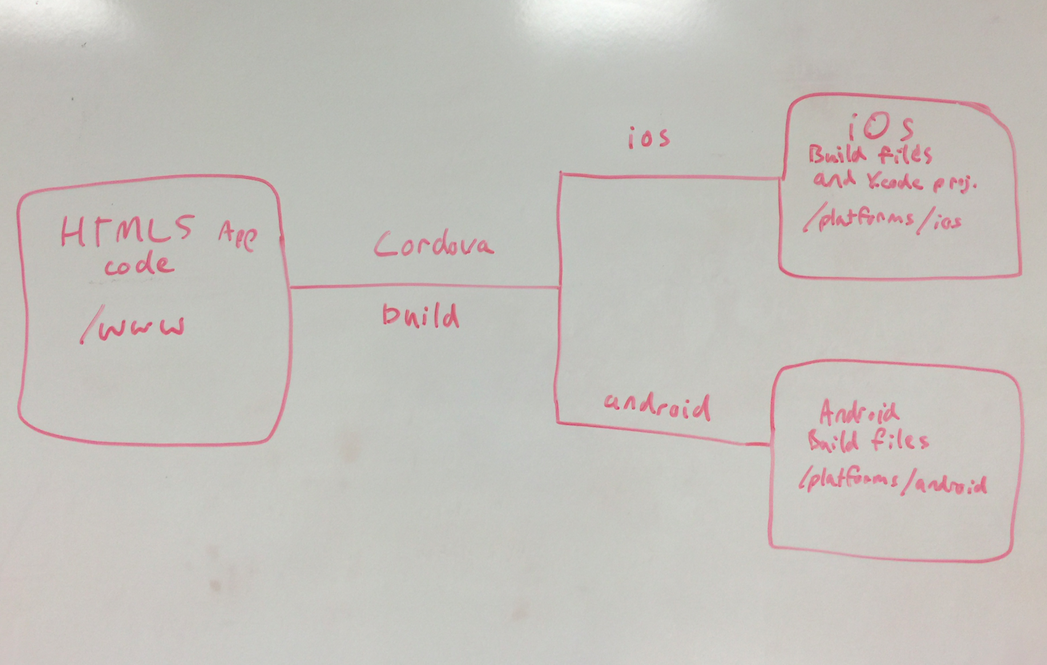 HTML5 App
code
/www
Cordova
build
ios
iOs
Build files
and Xcode proj.
/platforms/ios
android
Android
Build files
/platforms/android